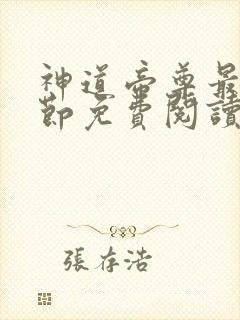 神道帝尊最
節免費閱讀
張存浩